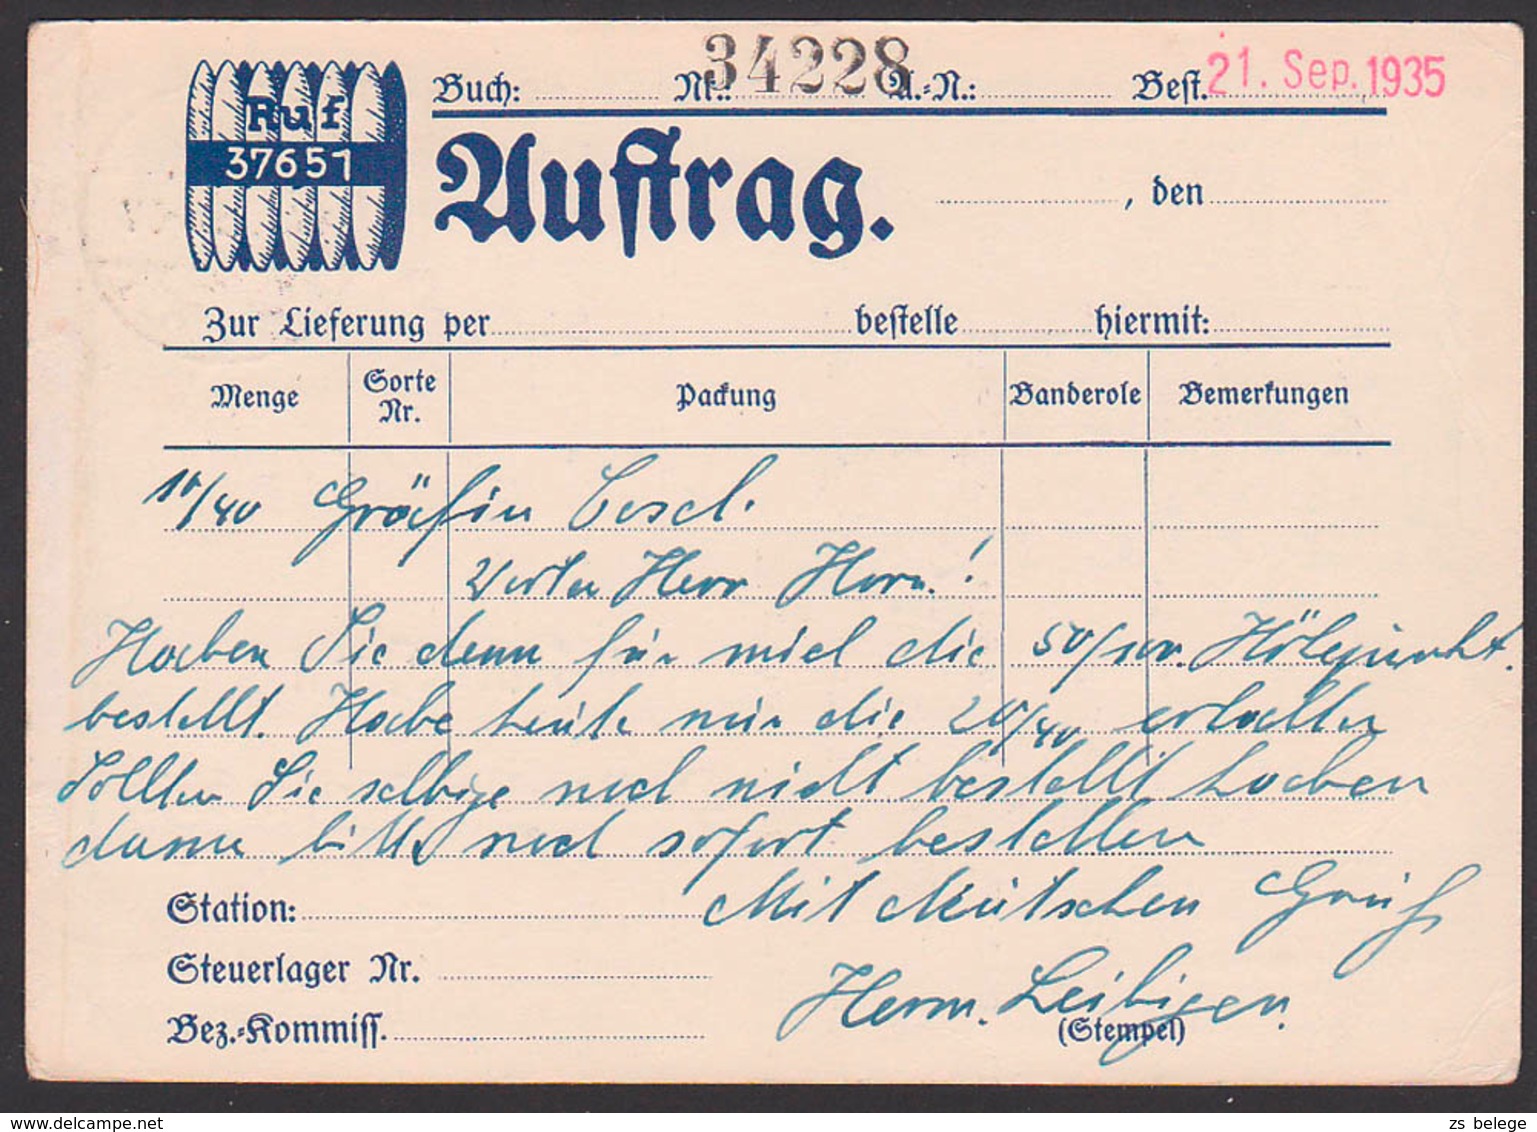 Ruf
37651
Buch: Nr.: 34228 A.-N.: Best. 21. Sep. 1935
Auftrag.
, den
Zur Lieferung per bestelle hiermit:
Menge Sorte Nr. Packung Banderole Bemerkungen
10/40 Gräfin
Werter Herr Horn!
Haben Sie denn für mich die 50/100.
bestellt. Habe heute nur die 20/40 erhalten
Sollten Sie selbige noch nicht bestellt haben
dann bitte noch sofort bestellen
Station: Mit deutschen Gruß
Steuerlager Nr.
Herm. Leibigen.
Bez.-Kommiss. (Stempel)
zs belege